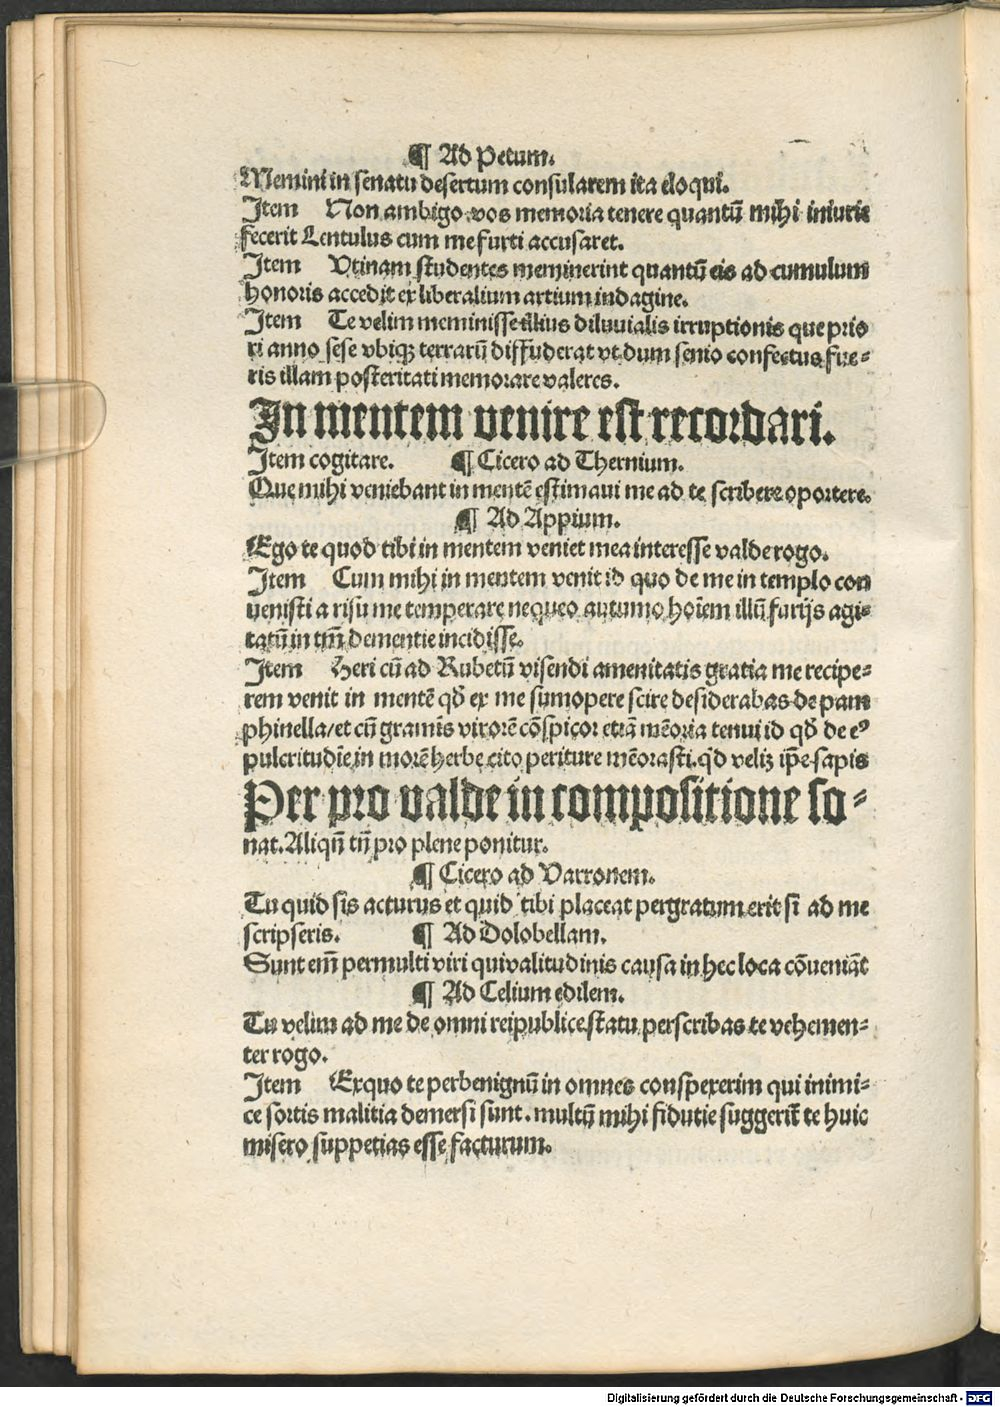 ¶ Ad Petum.
Memini in senatu desertum consularem ita eloqui.
Item Non ambigo vos memoria tenere quantũ mihi iniurie
fecerit Lentulus cum me furti accusaret.
Item Vtinam studentes meminerint quantũ eis ad cumulum
honoris accedit ex liberalium artium indagine.
Item Te velim meminisse illius diluuialis irruptionis que prio
ri anno sese vbiqȝ terrarũ diffuderat vt dum senio confectus fue⸗
ris illam posteritati memorare valeres.
In mentem venire est recordari.
Item cogitare. ¶ Cicero ad Thernium.
Que mihi veniebant in mentẽ estimaui me ad te scribere oportere.
¶ Ad Appium.
Ego te quod tibi in mentem veniet mea interesse valde rogo.
Item Cum mihi in mentem venit id quo de me in templo con
uenisti a risu me temperare nequeo autumo hoĩem illũ furijs agi⸗
tatũ in tm̃ dementie incidisse.
Item Heri cũ ad Rubetũ visendi amenitatis gratia me recipe⸗
rem venit in mentẽ qd̃ ex me sumopere scire desiderabas de pam
phinella/et cũ gramĩs virorẽ cõspicor etiã mẽoria tenui id qd̃ de eꝰ
pulcritudĩe in morẽ herbe cito periture mẽorasti. qd̃ veliȝ ip̃e sapis
Per pro valde in compositione so⸗
nat. Aliqñ tñ pro plene ponitur.
¶ Cicero ad Varronem.
Tu quid sis acturus et quid tibi placeat pergratum erit si ad me
scripseris. ¶ Ad Dolobellam.
Sunt em̃ permulti viri qui valitudinis causa in hec loca cõueniãt
¶ Ad Celium edilem.
Tu velim ad me de omni reipublice statu perscribas te vehemen⸗
ter rogo.
Item Exquo te perbenignũ in omnes conspexerim qui inimi⸗
ce sortis malitia demersi sunt. multũ mihi fidutie suggerit te huic
misero suppetias esse facturum.
Digitalisierung gefördert durch die Deutsche Forschungsgemeinschaft - DFG